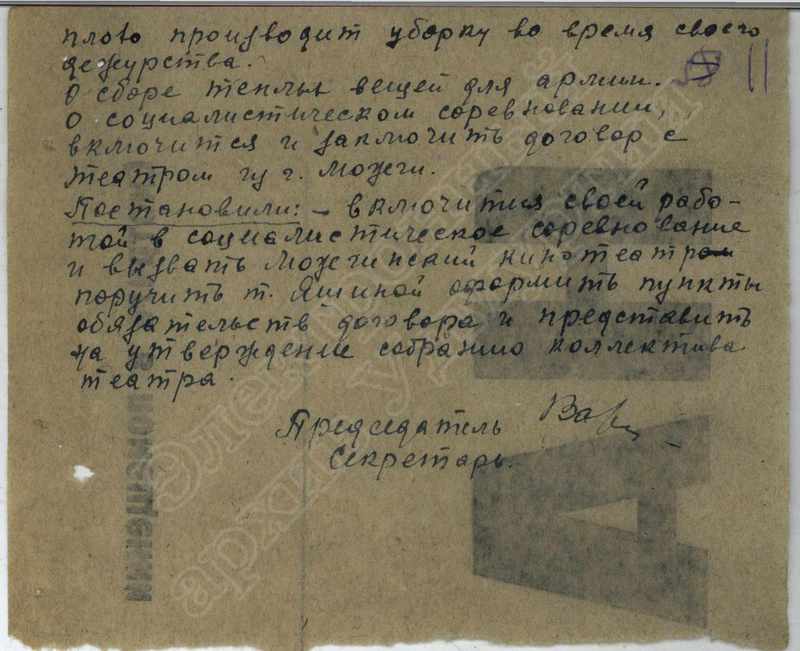 плохо производит уборку во время своего
дежурства.
О сборе теплых вещей для армии. 11
О социалистическом соревновании,
включится и заключить договор с
театром из г. Можги.
Постановили: – включится своей рабо-
той в социалистическое соревнование
и вызвать Можгинский кинотеатр
поручить т. Яшиной оформить пункты
обязательств договора и представить
на утверждение собранию коллектива
театра.
Председатель
Секретарь.